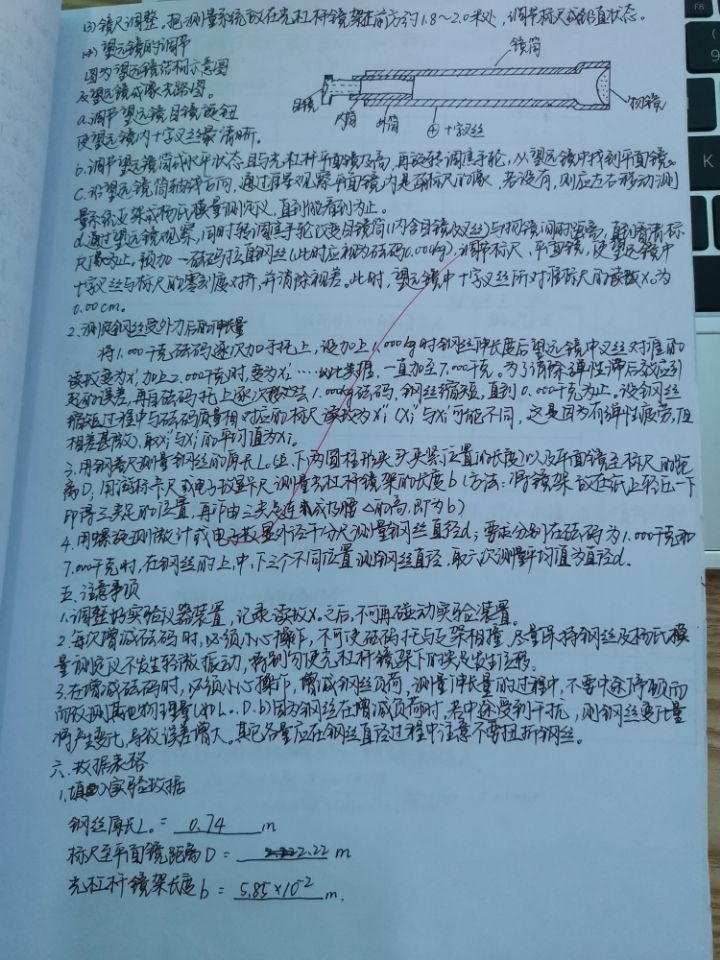 (3) 镜尺调整。把测量系统放在光杠杆镜架正前方约1.8~2.0米处，调节标尺成铅直状态。
(4) 望远镜的调节
图为望远镜结构示意图
及望远镜成像光路图。
镜筒
目镜
内筒
外筒
十字叉丝
物镜
a.调节望远镜目镜旋钮
使望远镜内十字叉丝最清晰。
b.调节望远镜筒成水平状态且与光杠杆平面镜等高，再旋转调焦手轮，从望远镜中找到平面镜。
c.沿望远镜筒轴线方向，通过准星观察平面镜内是否有标尺的像，若没有，则应左右移动测
量系统支架或杨氏模量测定仪，直到能看到为止。
d.通过望远镜观察，同时转调焦手轮改变目镜筒(内含目镜及叉丝)与物镜间的距离，直到看清标
尺像为止。预加一砝码拉直钢丝(此时应视为砝码0.00kg)，调节标尺、平面镜，使望远镜中
十字叉丝与标尺的零刻度对齐，并消除视差。此时，望远镜中十字叉丝所对准标尺的读数X₀为
0.00cm。
2.测定钢丝受外力后的伸长量
将1.000千克砝码逐次加于托上，设加上1.000kg时钢丝伸长度后望远镜中叉丝对准的
读数变为X₁'，加上2.000千克时，变为X₂'……以此类推，一直加至7.000千克。为了消除弹性滞后效应引
起的误差，再自砝码托上逐次移去1.000kg砝码，钢丝缩短，直到0.000千克为止。设钢丝
缩短过程中与砝码质量相对应的标尺读数为Xᵢ''(Xᵢ''与Xᵢ'可能不同，这是因为有弹性疲劳，但
相差甚微)，取Xᵢ'与Xᵢ''的平均值为Xᵢ。
3.用钢卷尺测量钢丝的原长L₀(上、下两圆柱形夹头夹紧位置的长度)以及平面镜至标尺的距
离D，用游标卡尺或电子数显卡尺测量光杠杆镜架的长度b(方法：将镜架放在纸上轻压一下
印得三尖足的位置，再作由三尖点连成的等腰△的高，即为b)
4.用螺旋测微计或电子数显外径千分尺测量钢丝直径d；要求分别在砝码为1.000千克和
7.000千克时，在钢丝的上、中、下三个不同位置测钢丝直径，取六次测量平均值为直径d。
五.注意事项
1.调整好实验仪器装置，记录读数X₀之后，不可再碰动实验装置。
2.每次增减砝码时，必须小心操作，不可使砝码托与支架相撞，尽量保持钢丝及杨氏模
量测定仪不发生轻微振动，特别勿使光杠杆镜架下的尖足发生位移。
3.在增减砝码时，必须小心操作，增减钢丝负荷，测量伸长量的过程中，不要中途停顿而
而改测其他物理量(如L₀、D、b)因为钢丝在增减负荷时，若中途受到干扰，则钢丝变化量
将产生变化，导致误差增大。其它各量应在钢丝直径过程中注意不要扭折钢丝。
六.数据表格
1.填入实验数据
钢丝原长L₀= 0.74 m
标尺至平面镜距离D= 2.22 m
光杠杆镜架长度b= 5.85×10⁻² m.